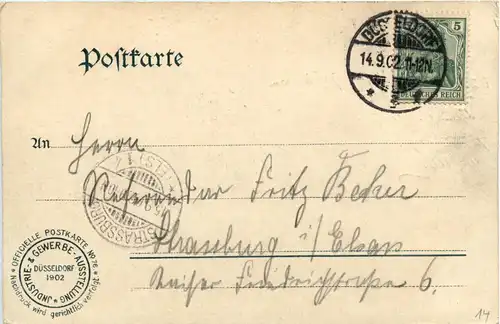 DÜSSELDORF
14.9.02.11-12N.
5
DEUTSCHES REICH
Postkarte
An Herrn
Referendar Fritz Becker
STRASSBURG (ELS) 1
Strassburg i/Elsass
Kaiser Friedrichstrasse 6.
* OFFICIELLE POSTKARTE No 76 *
Nachdruck wird gerichtlich verfolgt.
INDUSTRIE- & GEWERBE-AUSSTELLUNG
DÜSSELDORF
1902
14